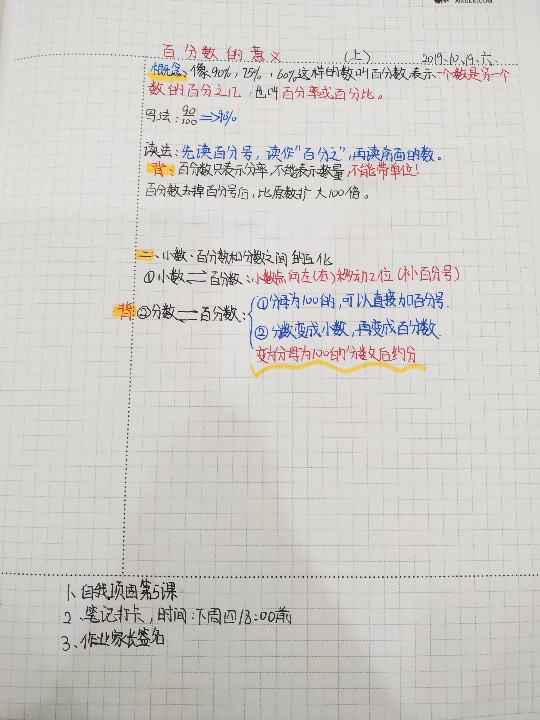 百分数的意义 (上) 2019.10.19.六.
概念: 像90%,75%,60%这样的数叫百分数,表示一个数是另一个
数的百分之几,也叫百分率或百分比。
写法: 90/100⇒90%
读法: 先读百分号,读作"百分之",再读前面的数。
背: 百分数只表示分率,不能表示数量,不能带单位!
百分数去掉百分号后,比原数扩大100倍。
二、小数、百分数和分数之间的互化
①小数⇌百分数: 小数点向左(右)移动2位(补百分号)
背 ②分数⇌百分数: ①分母为100的,可以直接加百分号.
②分数变成小数,再变成百分数
变为分母为100的分数后约分
1、自我巩固第5课
2、笔记打卡,时间:下周四18:00前
3、作业家长签名